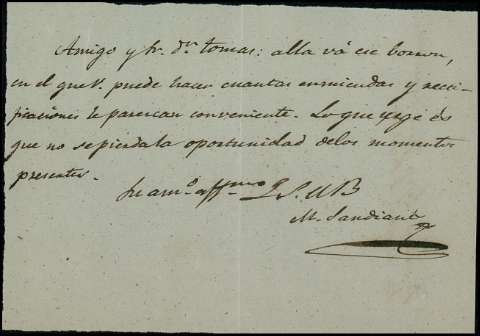 Amigo y Sr. Dn. tomas: alla vá ese borron,
en el que V. puede hacer cuantas enmiendas y recti-
ficaciones le parescan conveniente. Lo que urje és
que no se pierda la oportunidad de los momentos
presentes.
Su amo. affmo. Q. S. M B
M. Sandiante